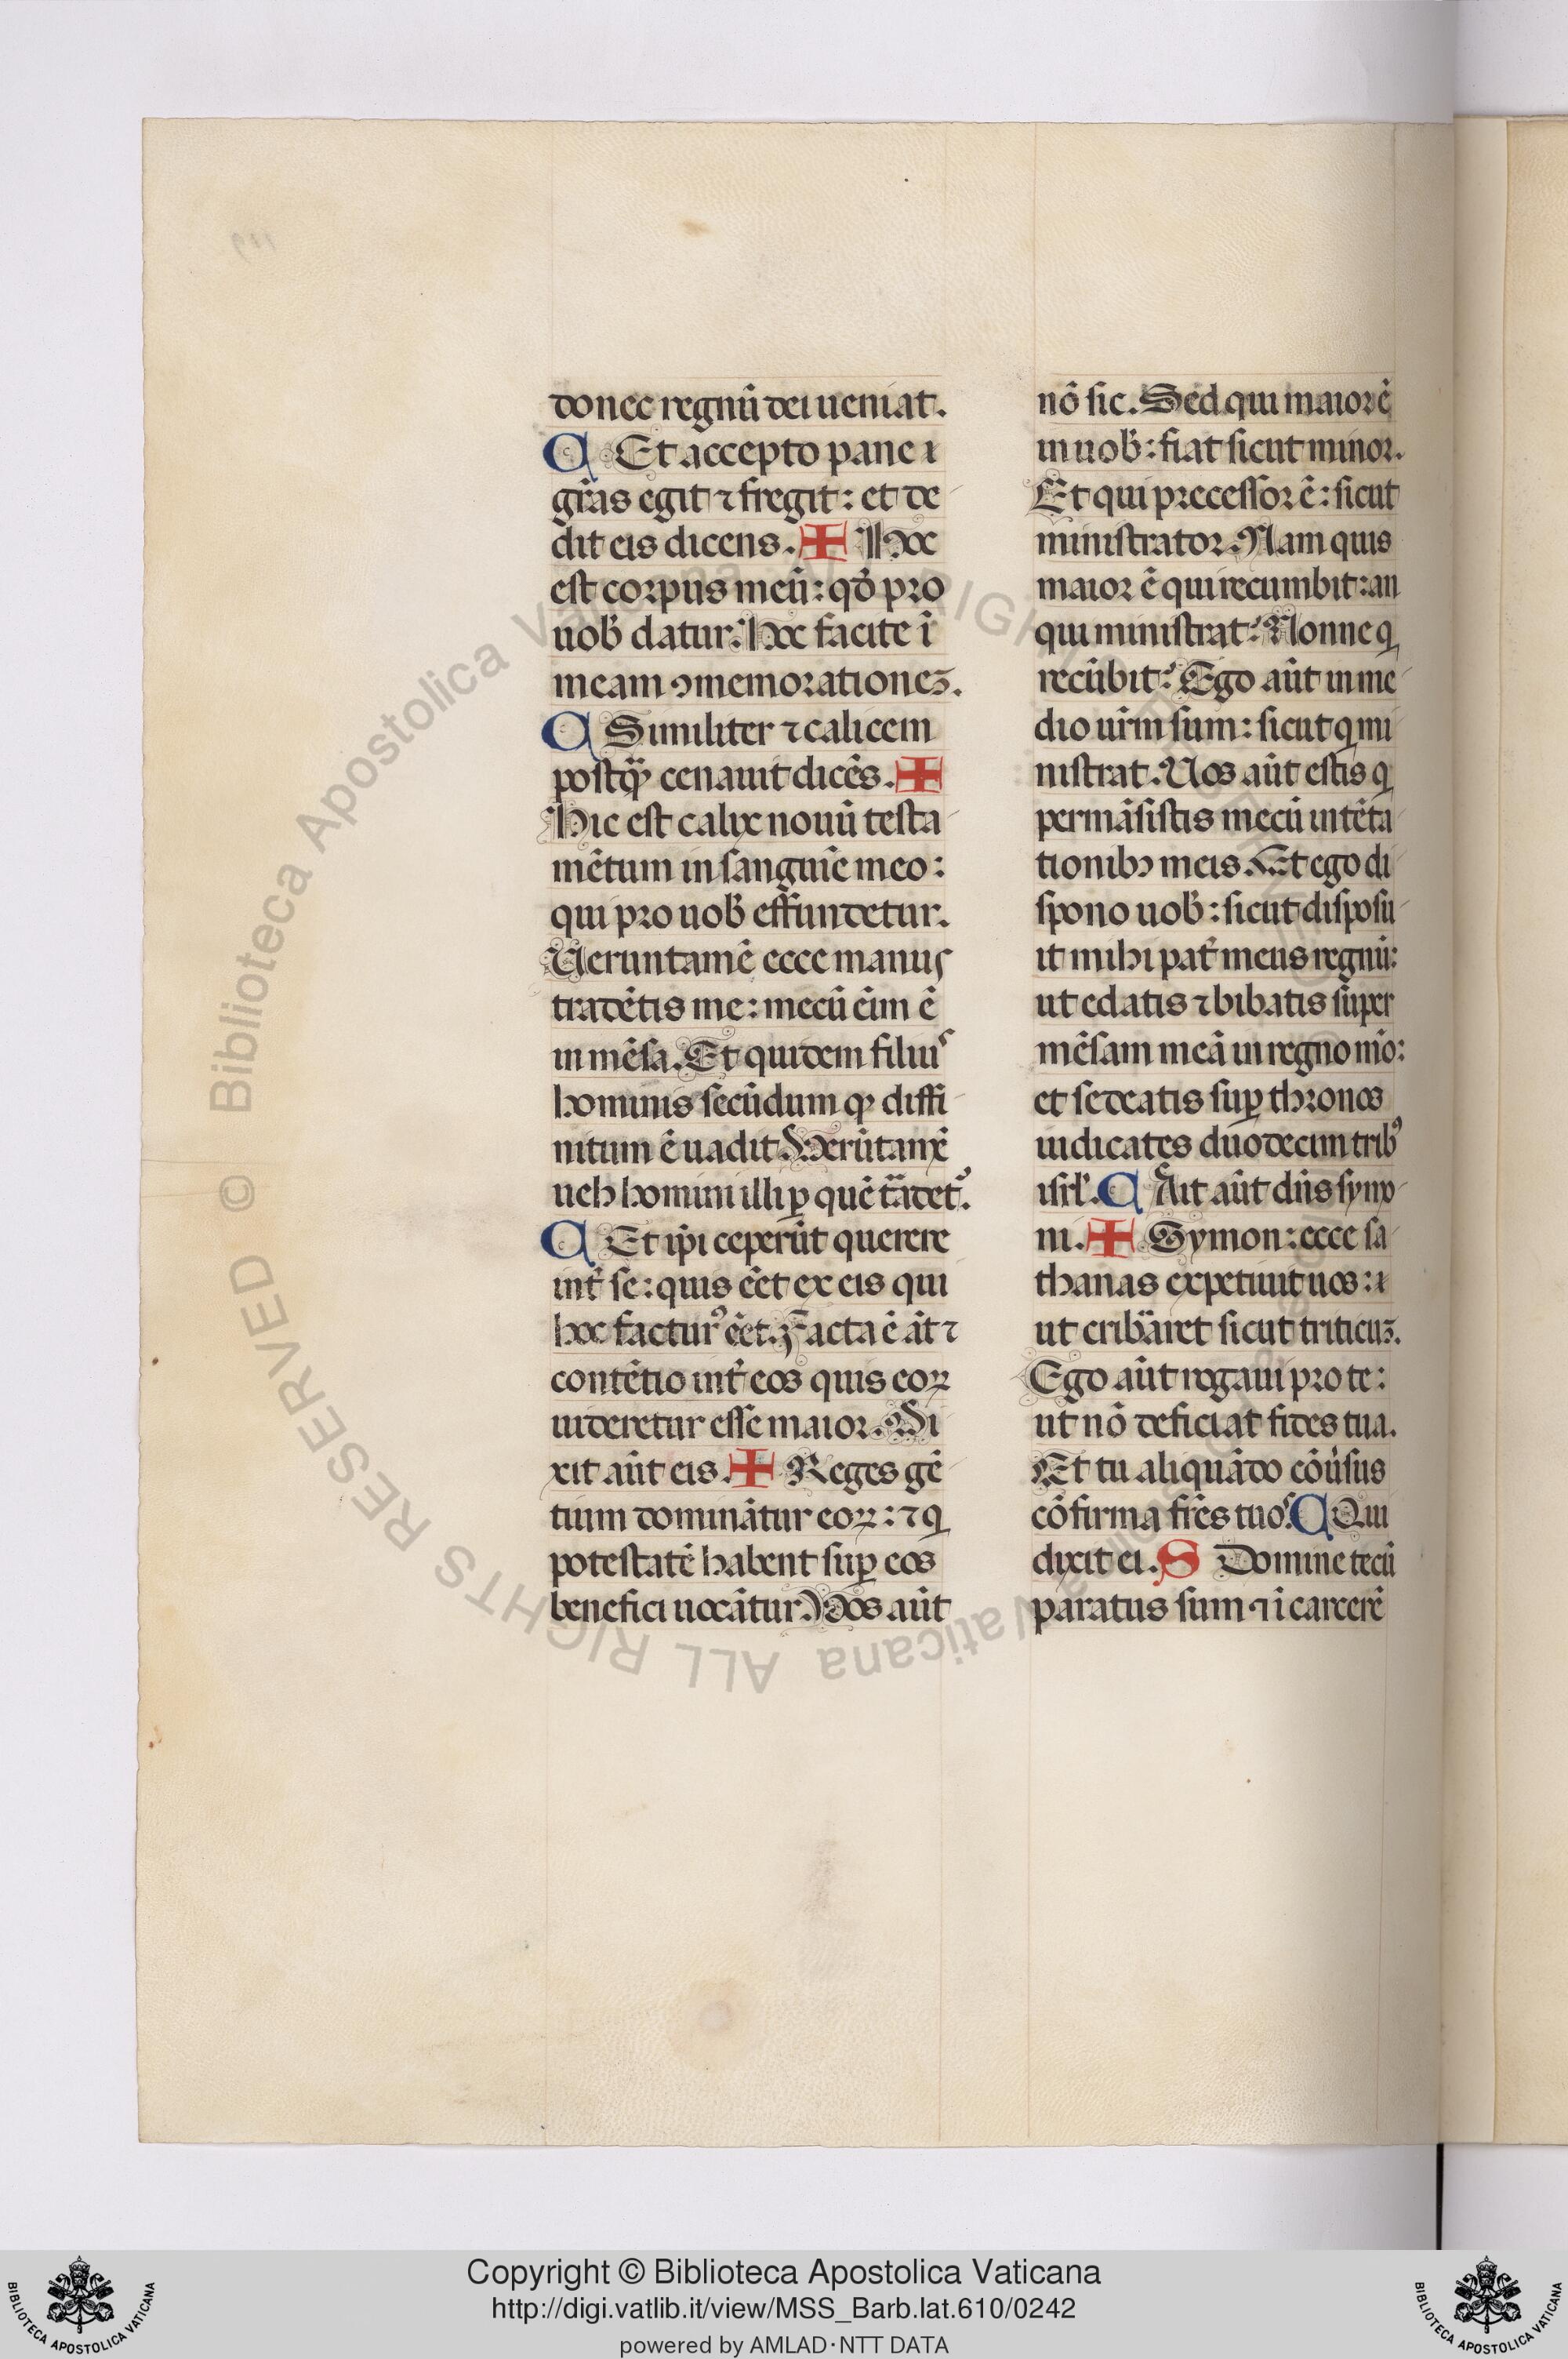 donec regnū dei ueniat.
Et accepto pane ⁊
gr̄as egit ⁊ fregit : et de
dit eis dicens. ✠ Hoc
est corpus meū : qđ pro
uob̄ datur. Hoc facite ī
meam ꝯmemorationeꝫ.
Similiter ⁊ calicem
postq̃ cenauit dicēs. ✠
Hic est calix nouū testa
mētum in sanguīe meo :
qui pro uob̄ effundetur.
Ueruntamē ecce manus
tradētis me : mecū eīm ē
in mēsa. Et quidem filius
hominis secūdum ꝙ diffi
nitum ē uadit. Uerūtamē
ueh homini illi ꝑ quē tͣdetᷣ.
Et ip̄i ceperūt querere
int̄ se : quis eēt ex eis qui
hoc facturꝰ eēt. Facta ē āt ⁊
contētio int̄ eos quis eoꝝ
uideretur esse maior. Di
xit aūt eis. ✠ Reges gē
tium dominātur eoꝝ : ⁊ q
potestatē habent suꝑ eos
benefici uocātur. Uos aūt
nō sic. Sed qui maior ē
in uob̄ : fiat sicut minor.
Et qui precessor ē : sicut
ministrator. Nam quis
maior ē qui recumbit : an
qui ministrat? Nonne q
recūbit? Ego aūt in me
dio ur̄m sum : sicut q mi
nistrat. Uos aūt estis q
permāsistis mecū in tēta
tionibꝫ meis. Et ego di
spono uob̄ : sicut disposu
it mihi pat̄ meus regnū :
ut edatis ⁊ bibatis super
mēsam meā in regno mō :
et sedeatis suꝑ thronos
iudicātes duodecim tribꝰ
isrl̄. Ait aūt dn̄s symo
ni. ✠ Symon : ecce sa
thanas expetiuit uos : ⁊
ut cribaret sicut triticuꝫ.
Ego aūt rogaui pro te :
ut nō deficiat fides tua.
Et tu aliquādo cōuersus
cōfirma fr̄es tuos. Qui
dixit ei. S Domine tecū
paratus sum ⁊ i carcerē
© Biblioteca Apostolica Vaticana ALL RIGHTS RESERVED
Copyright © Biblioteca Apostolica Vaticana
http://digi.vatlib.it/view/MSS_Barb.lat.610/0242
powered by AMLAD·NTT DATA
BIBLIOTECA APOSTOLICA VATICANA
BIBLIOTECA APOSTOLICA VATICANA